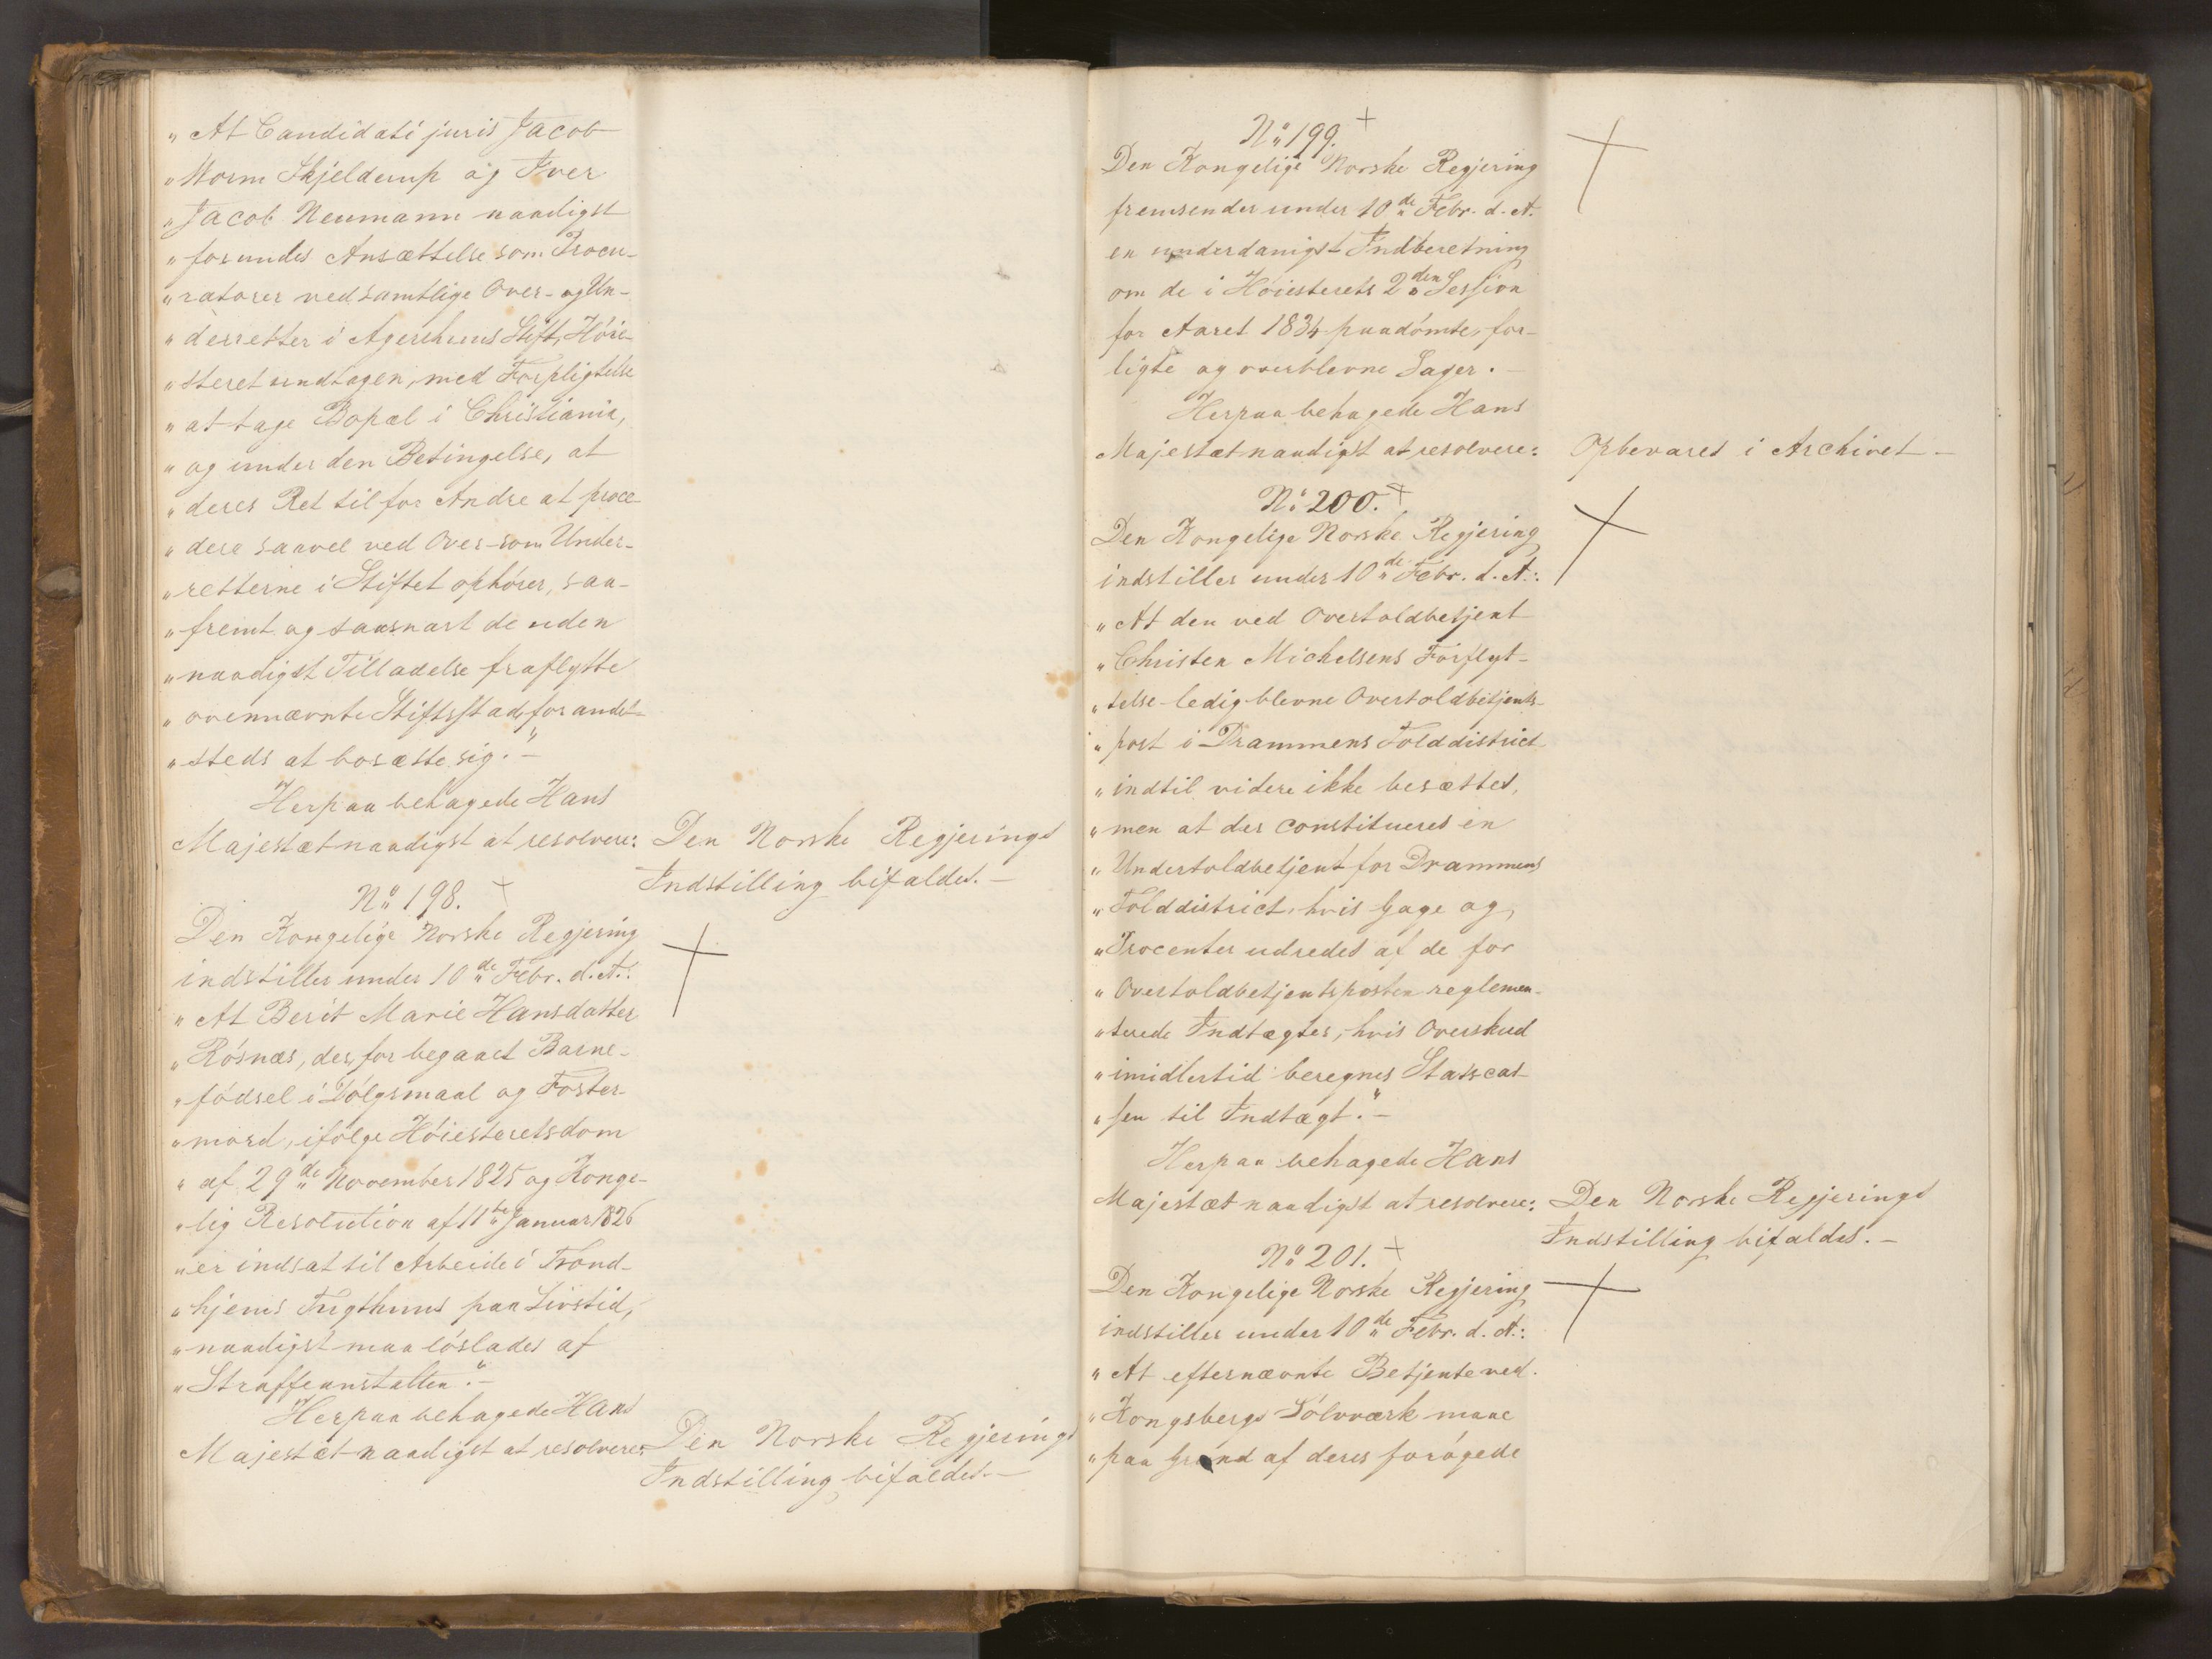 „At Candidati juris Jacob
„Worm Skjelderup og Iver
„Jacob Neumann naadigst
„forundes Ansættelse som Procu-
„ratorer ved samtlige Over- og Un-
„derretter i Agershuus Stift, Höie-
„steret undtagen, med Forpligtelse
„at tage Bopæl i Christiania,
„og under den Betingelse, at
„deres Ret til for Andre at proce-
„dere saavel ved Over- som Under-
„retterne i Stiftet ophörer, saa-
„fremt og saasnart de uden
„naadigst Tilladelse fraflytte
„ovennævnte Stiftsstad, for andet-
„steds at bosætte sig.“ –
Herpaa behagede Hans
Majestæt naadigst at resolvere: Den Norske Regjerings
Indstilling bifaldes. –
No 198. +
Den Kongelige Norske Regjering
indstiller under 10de Febr. d. A.:
„At Berit Marie Hansdatter
„Rösnæs, der, for begaaet Barne-
„födsel i Dölgsmaal og Foster-
„mord, ifölge Höiesteretsdom
„af 29de November 1825 og Konge-
„lig Resolution af 11te Januar 1826
„er indsat til Arbeide i Trond-
„hjems Tugthuus paa Livstid,
„naadigst maa löslades af
„Straffeanstalten“. –
Herpaa behagede Hans
Majestæt naadigst at resolvere: Den Norske Regjerings
Indstilling bifaldes. –
No 199. +
Den Kongelige Norske Regjering
fremsender under 10de Febr. d. A.
en underdanigst Indberetning
om de i Höiesterets 2den Session
for Aaret 1834 paadömte, for-
ligte og overblevne Sager. –
Herpaa behagede Hans
Majestæt naadigst at resolvere: Opbevares i Archivet –
No 200. +
Den Kongelige Norske Regjering
indstiller under 10de Febr. d. A.:
„At den ved Overtoldbetjent
„Christen Michelsens Forflyt-
„telse ledig blevne Overtoldbetjents-
„post i Drammens Tolddistrict
„indtil videre ikke besættes,
„men at der constitueres en
„Undertoldbetjent for Drammens
„Tolddistrict, hvis Gage og
„Procenter udredes af de for
„Overtoldbetjentsposten reglemen-
„terede Indtægter, hvis Overskud
„imidlertid beregnes Statscas-
„sen til Indtægt.“ –
Herpaa behagede Hans
Majestæt naadigst at resolvere: Den Norske Regjerings
Indstilling bifaldes. –
No 201. +
Den Kongelige Norske Regjering
indstiller under 10de Febr. d. A.:
„At efternævnte Betjente ved
„Kongsbergs Sölvværk maae
„paa Grund af deres forögede